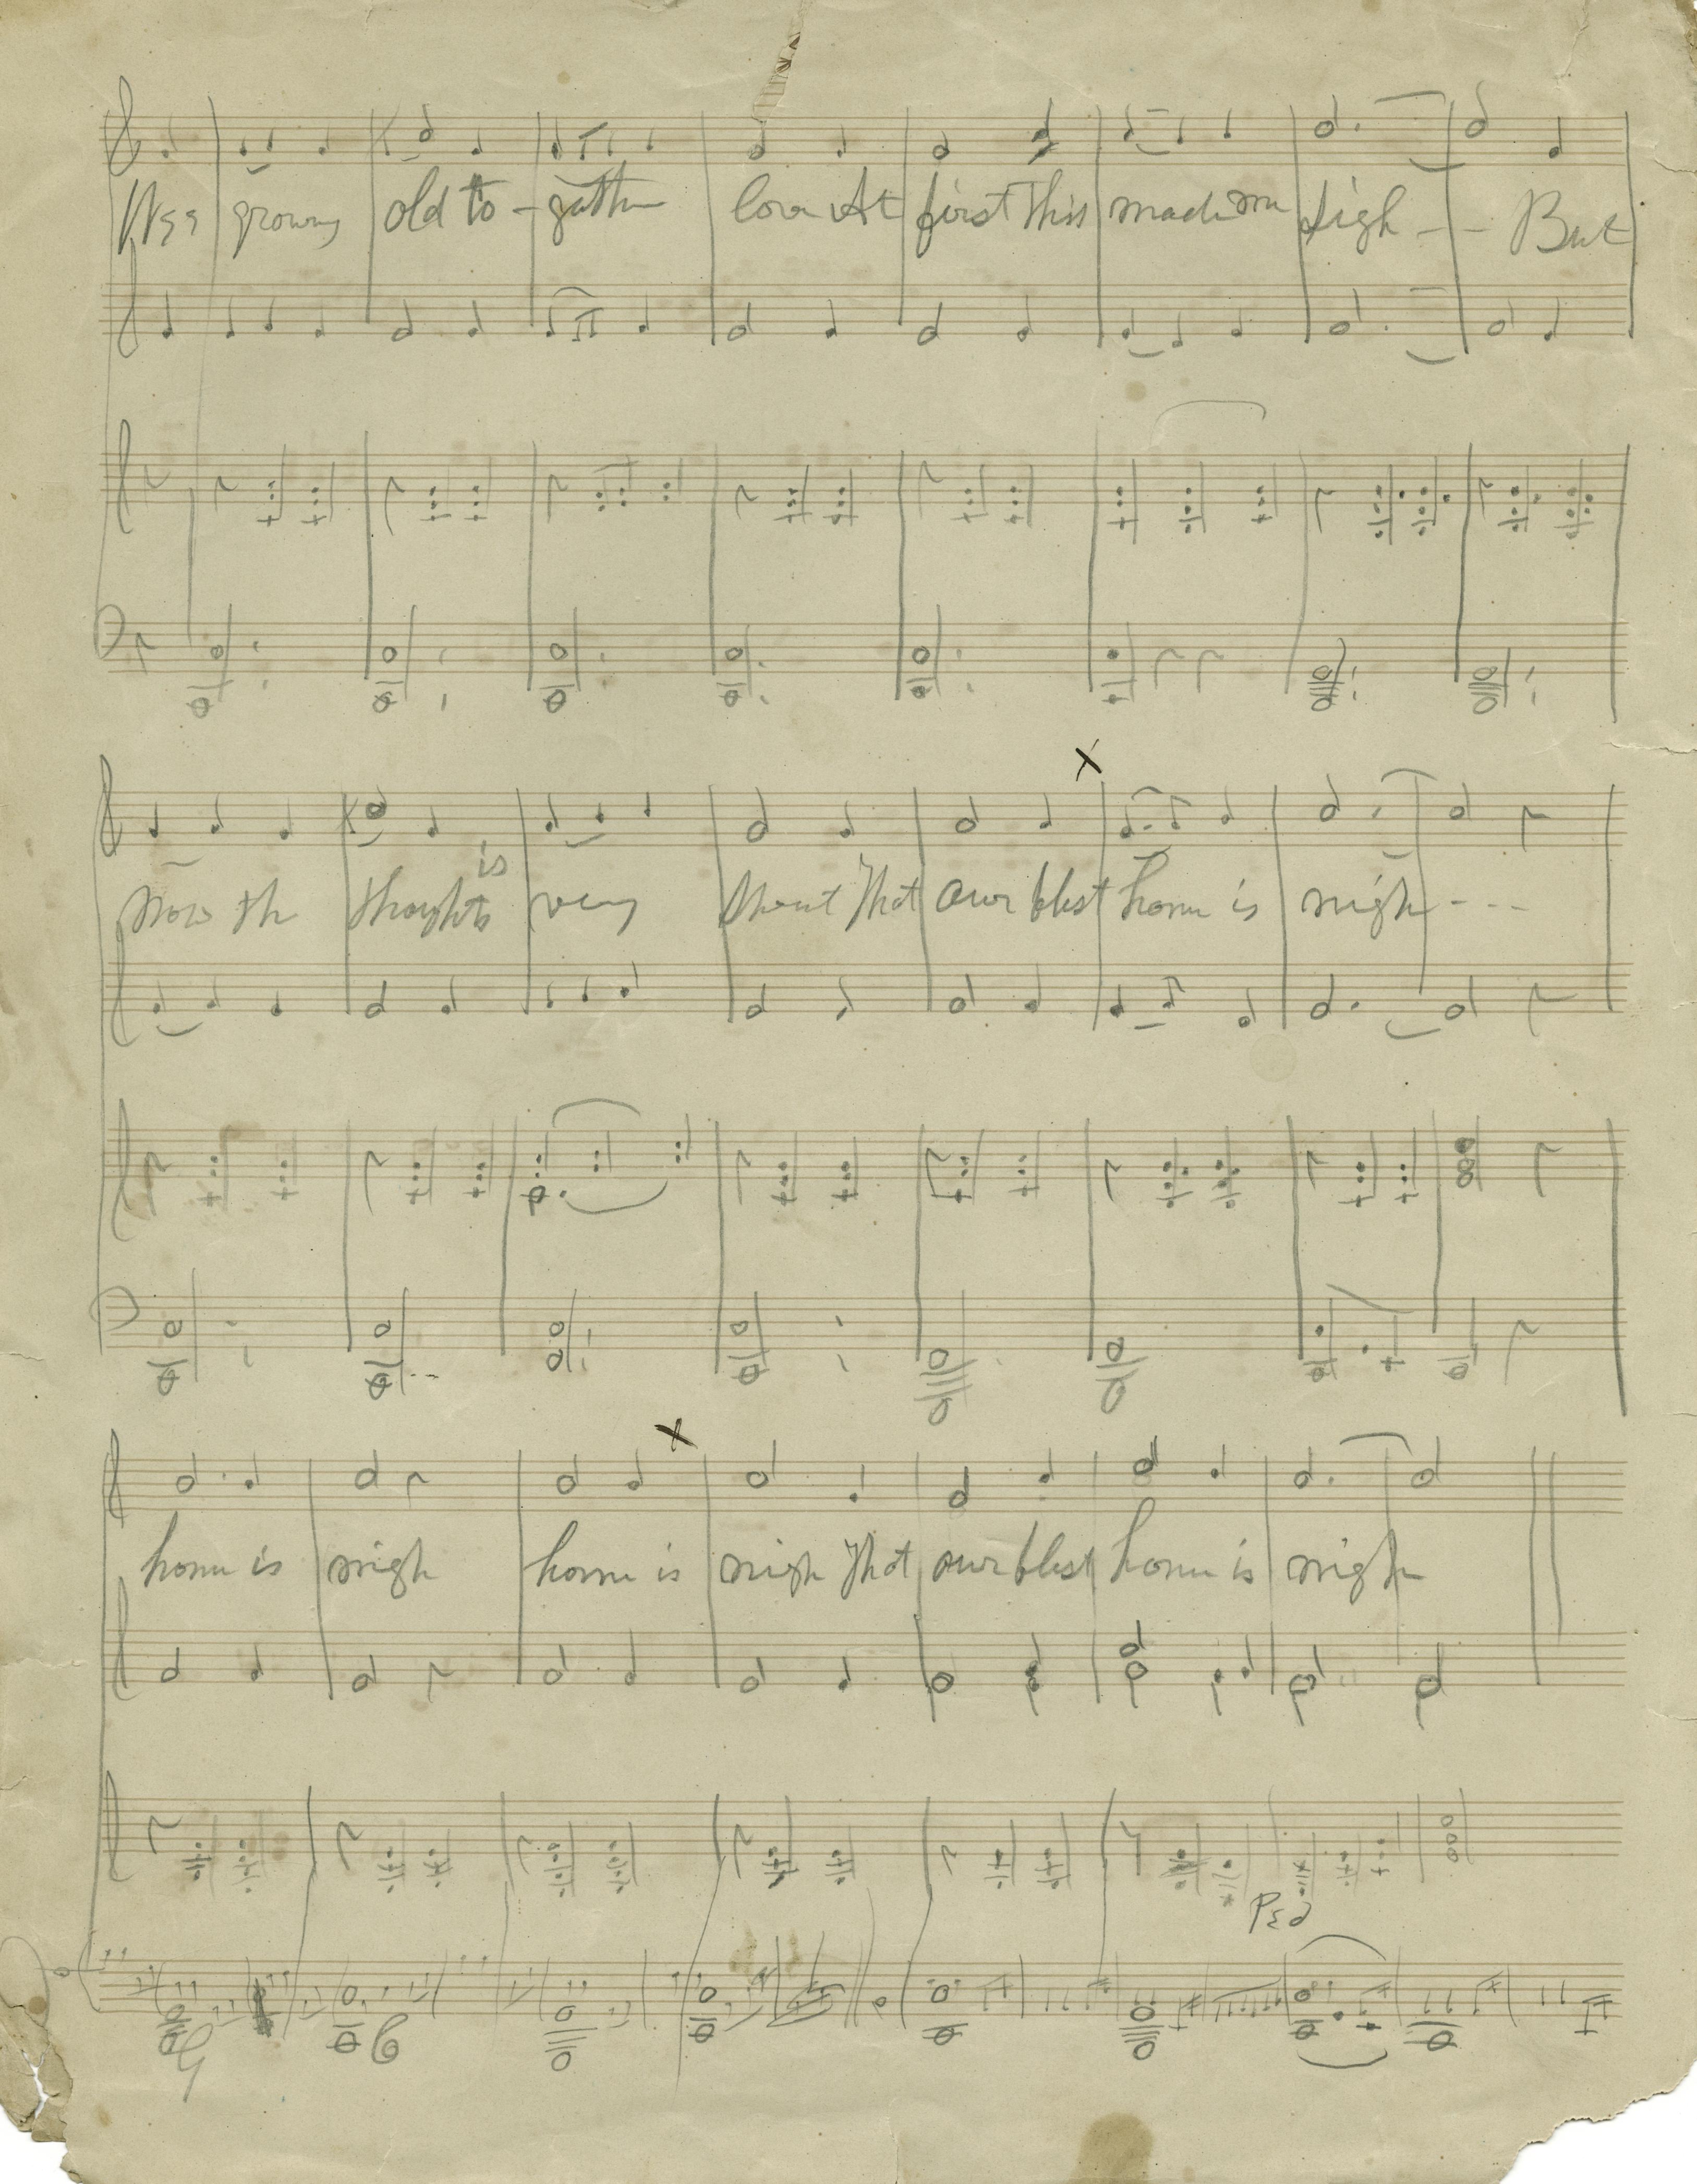 growing old to-gather love At first this made me sigh -- But
is
now the thoughts very sweet that our blest home is nigh ---
home is nigh home is nigh that our blest home is nigh
Ped
G C